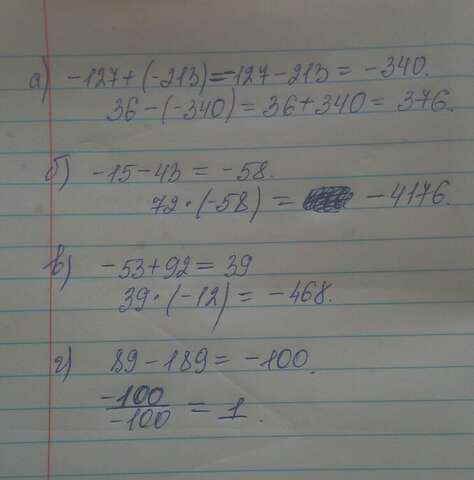 а) -127+(-213)=-127-213=-340.
36-(-340)=36+340=376.
б) -15-43=-58.
72·(-58)= -4176.
в) -53+92=39
39·(-12)=-468.
г) 89-189=-100.
-100
-100 = 1.